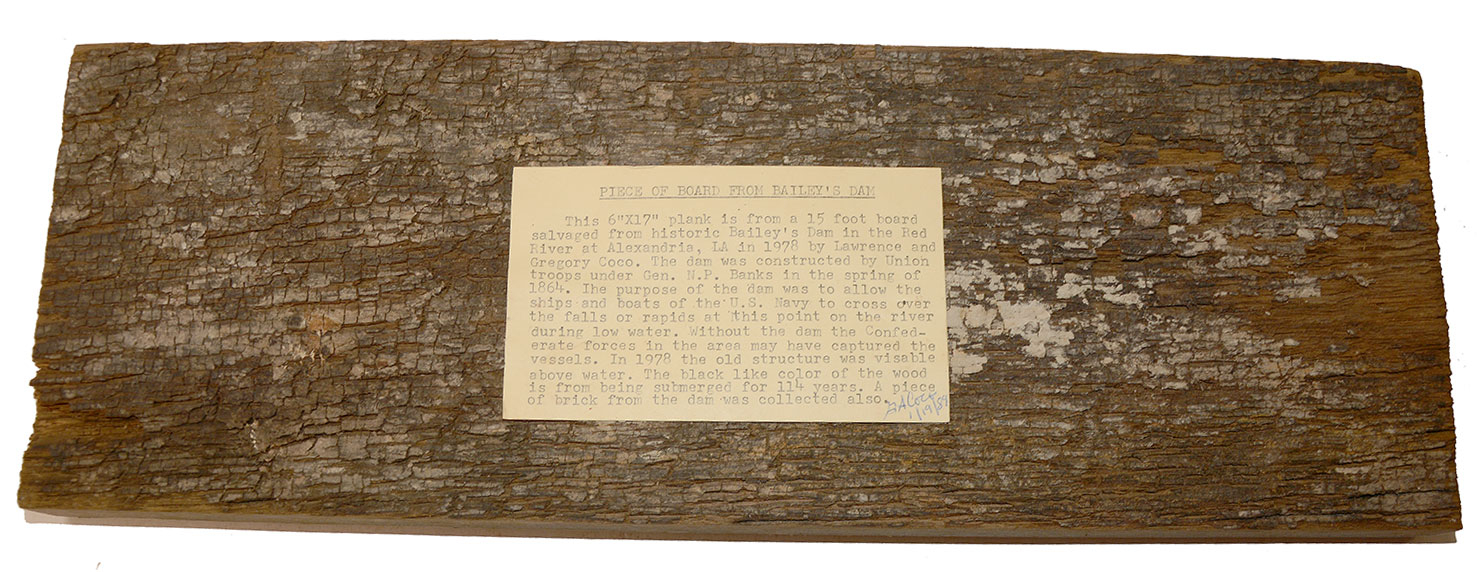 PIECE OF BOARD FROM BAILEY'S DAM
This 6"X17" plank is from a 15 foot board
salvaged from historic Bailey's Dam in the Red
River at Alexandria, LA in 1978 by Lawrence and
Gregory Coco. The dam was constructed by Union
troops under Gen. N.P. Banks in the spring of
1864. The purpose of the dam was to allow the
ships and boats of the U.S. Navy to cross over
the falls or rapids at this point on the river
during low water. Without the dam the Confed-
erate forces in the area may have captured the
vessels. In 1978 the old structure was visable
above water. The black like color of the wood
is from being submerged for 114 years. A piece
of brick from the dam was collected also.
GACoco
1/19/89